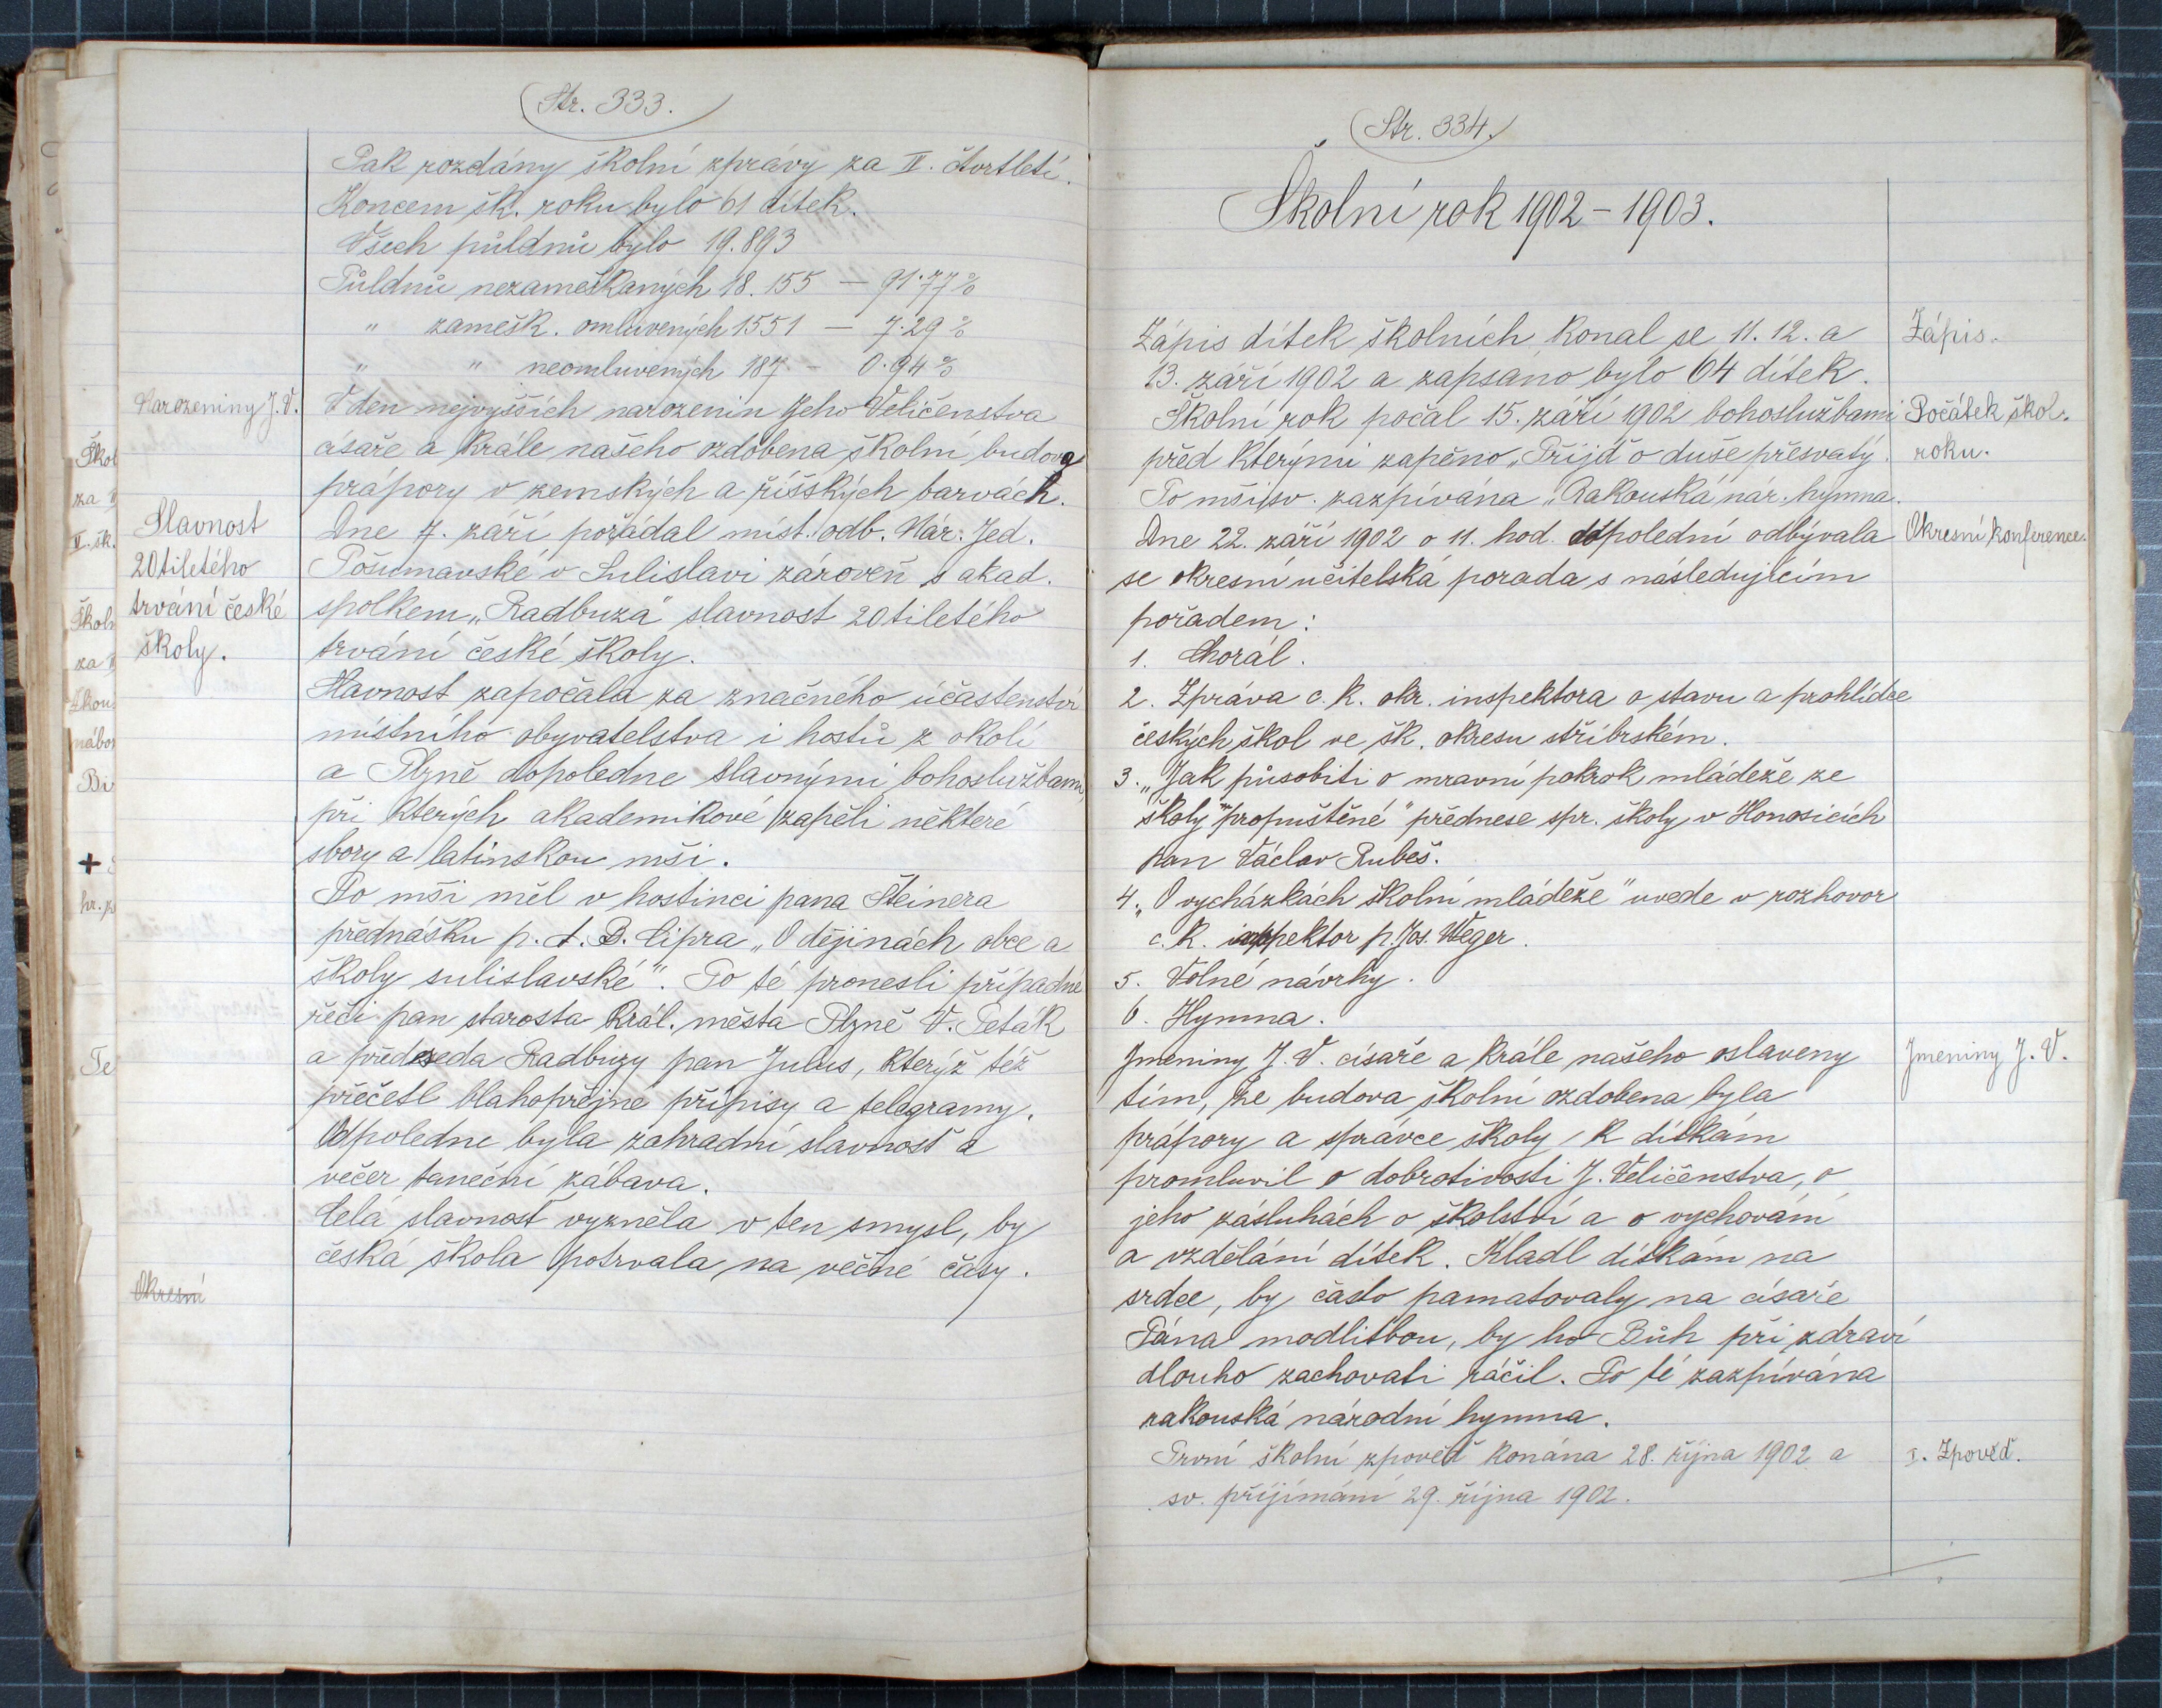 Str. 333.
Pak rozdány školní zprávy za IV. čtvrtletí.
Koncem šk. roku bylo 61 dítek.
Všech půldnů bylo 19.893
Půldnů nezameškaných 18.155 — 91·77%
" zamešk. omluvených 1551 — 7·29%
" " neomluvených 187 — 0·94%
Narozeniny J. V.
V den nejvyšších narozenin Jeho Veličenstva
císaře a krále našeho ozdobena školní budova
prápory v zemských a říšských barvách.
Slavnost
20tiletého
trvání české
školy.
Dne 7. září pořádal míst. odb. Nár. Jed.
Pošumavské v Sulislavi zároveň s akad.
spolkem „Radbuza" slavnost 20tiletého
trvání české školy.
Slavnost započala za značného účastenství
místního obyvatelstva i hostů z okolí
a Plzně dopoledne slavnými bohoslužbami,
při kterých akademikové zapěli některé
sbory a latinskou mši.
Po mši měl v hostinci pana Šteinera
přednášku p. A. B. Cipra „O dějinách obce a
školy sulislavské". Po té pronesli případné
řeči pan starosta král. města Plzně V. Peták
a předseda Radbuzy pan Julus, kterýž též
přečetl blahopřejné přípisy a telegramy.
Odpoledne byla zahradní slavnost a
večer taneční zábava.
Celá slavnost vyzněla v ten smysl, by
česká škola potrvala na věčné časy.
Okresní
Škol
za
II. šk.
Školn
za
nábo
hr.
Te
Str. 334.
Školní rok 1902-1903.
Zápis.
Zápis dítek školních konal se 11. 12. a
13. září 1902 a zapsáno bylo 64 dítek.
Počátek škol.
roku.
Školní rok počal 15. září 1902 bohoslužbami
před kterými zapěno „Přijď o duše přesvatý.
Po mši sv. zazpívána „Rakouská nár. hymna.
Okresní konference.
Dne 22. září 1902 o 11. hod. dopolední odbývala
se okresní učitelská porada s následujícím
pořadem:
1. Chorál.
2. Zpráva c. k. okr. inspektora o stavu a prohlídce
českých škol ve šk. okresu stříbrském.
3. „Jak působiti o mravní pokrok mládeže ze
školy propuštěné" přednese spr. školy v Honosicích
pan Václav Rubeš.
4. „O vycházkách školní mládeže" uvede v rozhovor
c. k. inspektor p. Jos. Weger.
5. Volné návrhy.
6. Hymna.
Jmeniny J. V.
Jmeniny J. V. císaře a krále našeho oslaveny
tím, že budova školní ozdobena byla
prápory a správce školy k dítkám
promluvil o dobrotivosti J. Veličenstva, o
jeho zásluhách o školství a o vychování
a vzdělání dítek. Kladl dítkám na
srdce, by často pamatovaly na císaře
Pána modlitbou, by ho Bůh při zdraví
dlouho zachovati ráčil. Po té zazpívána
rakouská národní hymna.
I. Zpověď.
První školní zpověď konána 28. října 1902 a
sv. přijímání 29. října 1902.